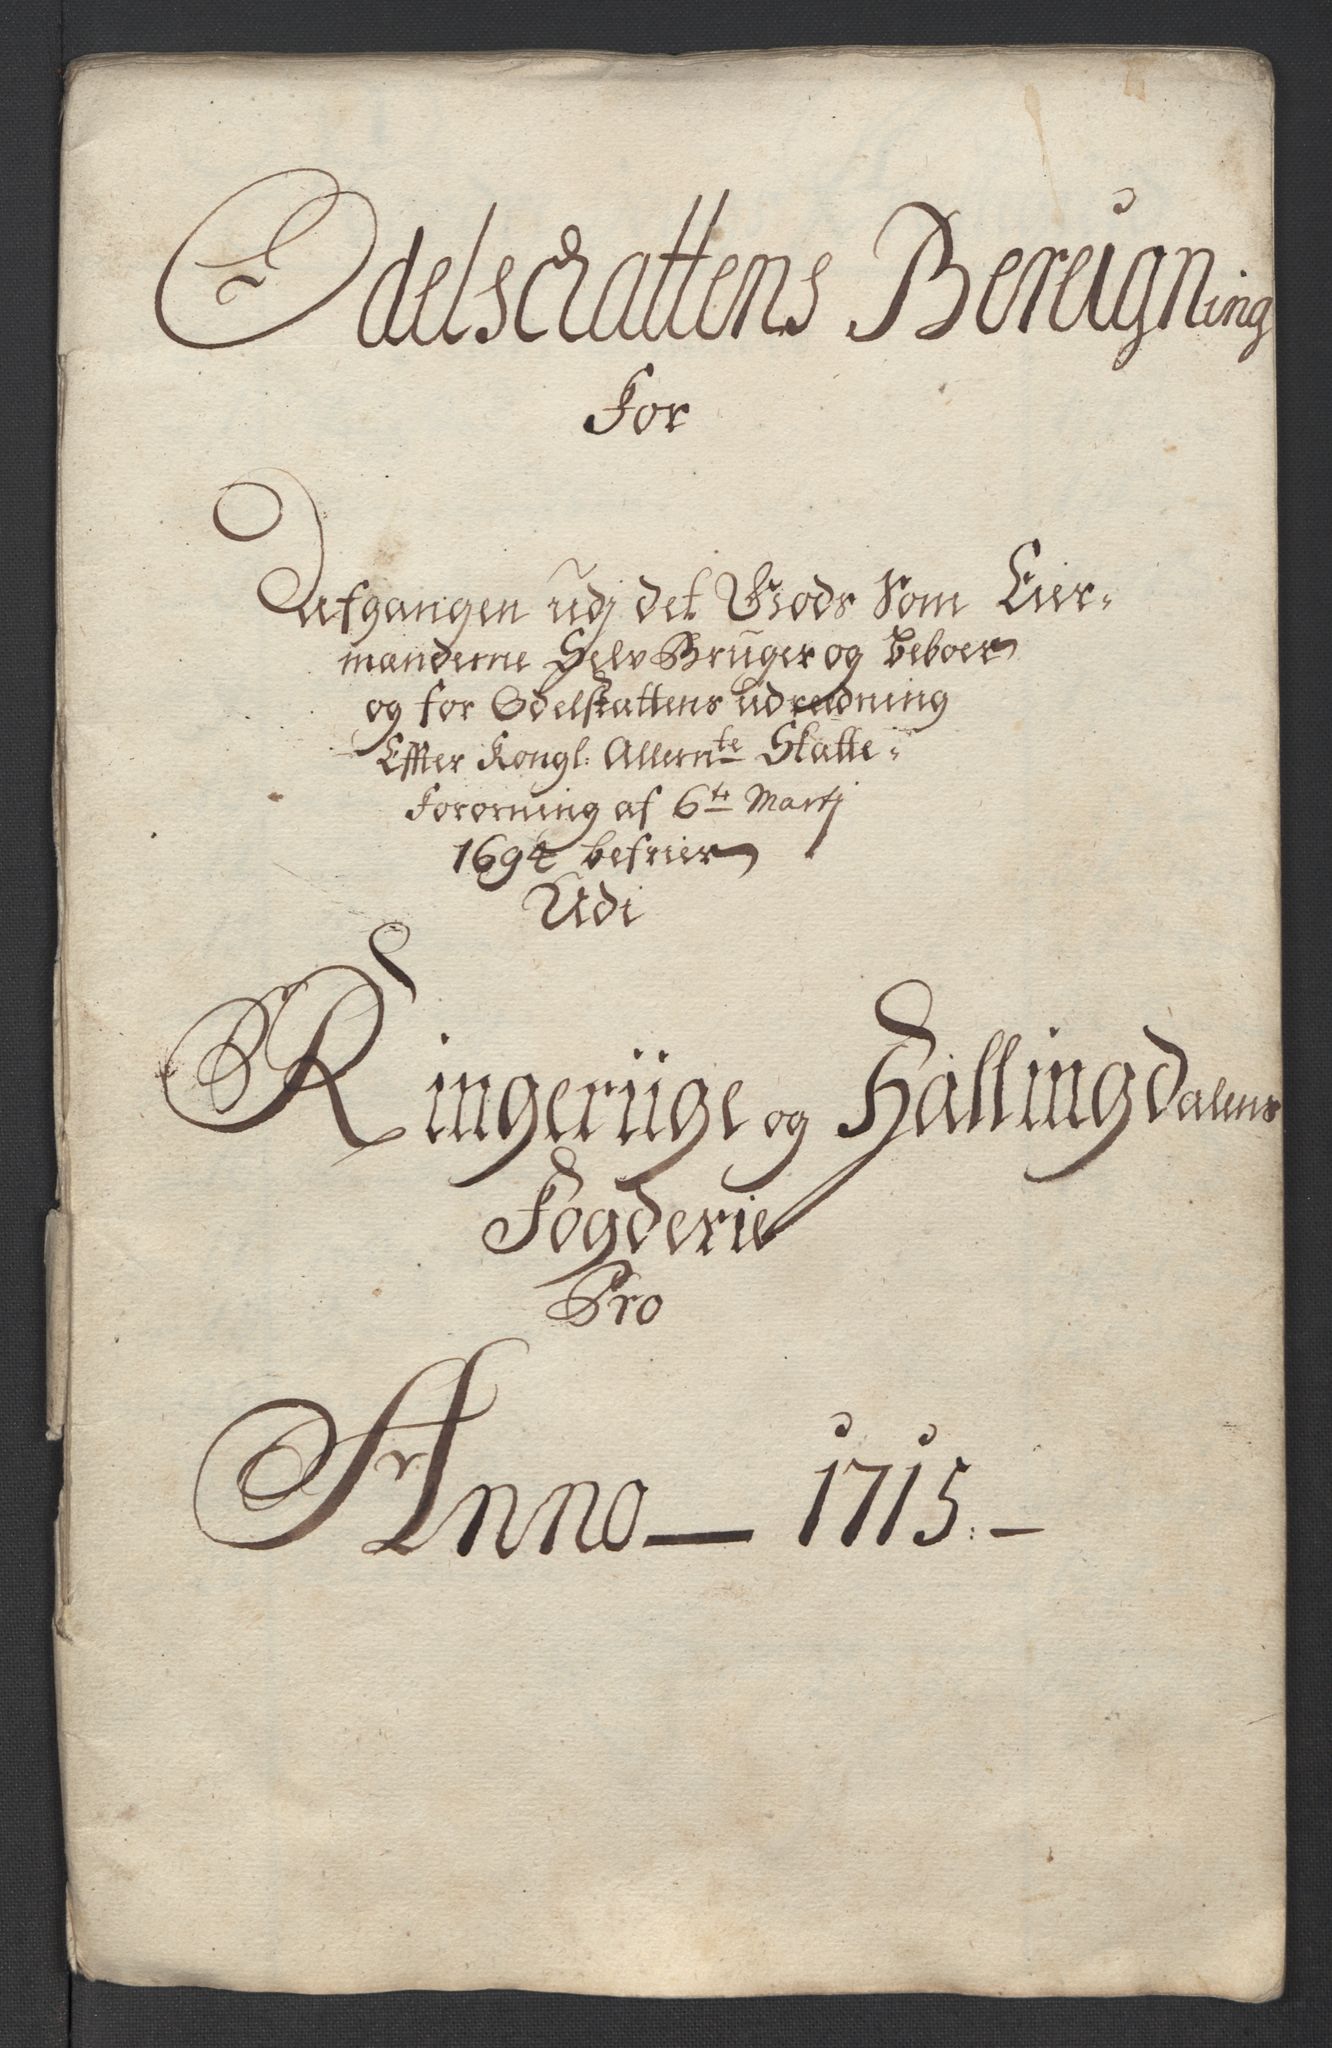 Odelschattens Bereigning
For
Aufgangen udj det Gods Som Eier-
manderne Selv Bruger og beboer
og for Odelskattens udredning
Effter Kongl: Allern^te Skatte-
Fororning af 6^te Martj
1694 befrier
Udi
Ringeriige og Hallingdalens
Fogderie
Pro
Anno — 1715. —